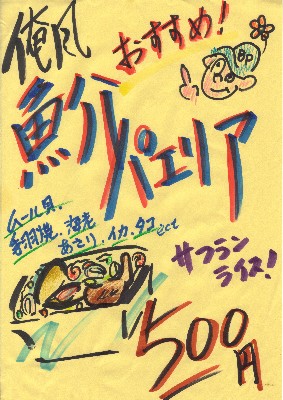 俺風
おすすめ!
魚介パエリア
ムール貝、
手羽焼、海老
あさり、イカ、タコ ect
サフラン
ライス!
500円